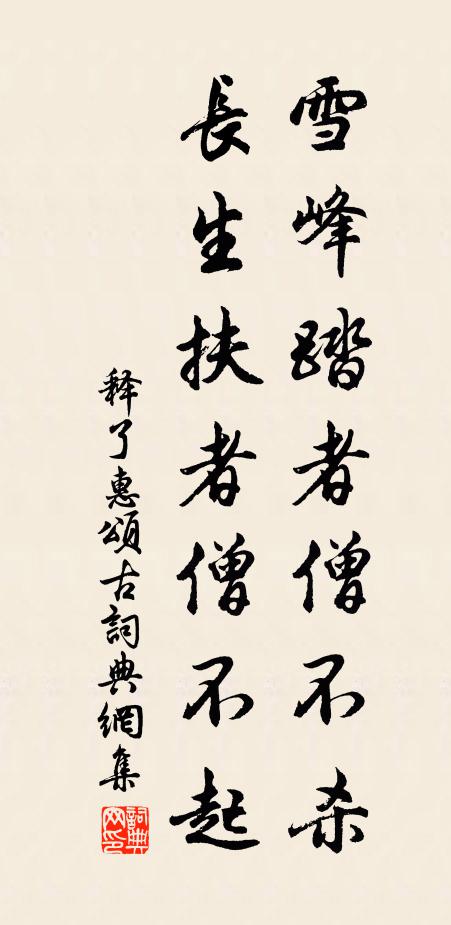 雪峰踏者僧不杀
長生扶者僧不起
释了惠頌古詞典網集
詞典網印